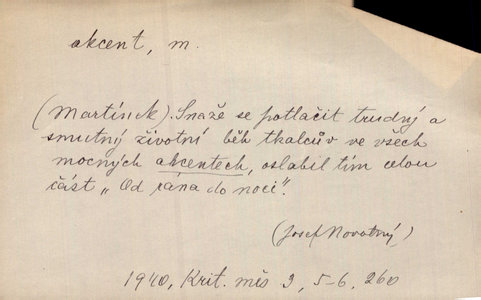 akcent, m.
(Martínek). Snaže se potlačit trudný a
smutný životní běh tkalcův ve všech
mocných akcentech, oslabil tím celou
část „Od rána do noci".
(Josef Novotný)
1940, Krit. měs 3, 5-6, 260